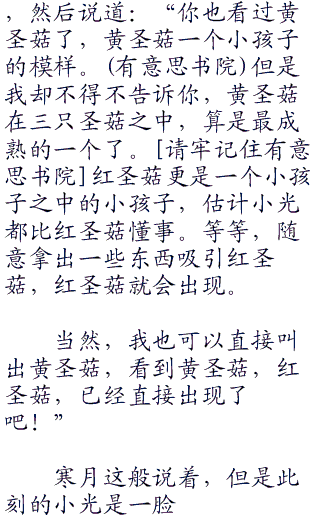 ，然后说道：“你也看过黄
圣菇了，黄圣菇一个小孩子
的模样。(有意思书院)但是
我却不得不告诉你，黄圣菇
在三只圣菇之中，算是最成
熟的一个了。[请牢记住有意
思书院]红圣菇更是一个小孩
子之中的小孩子，估计小光
都比红圣菇懂事。等等，随
意拿出一些东西吸引红圣
菇，红圣菇就会出现。
当然，我也可以直接叫
出黄圣菇，看到黄圣菇，红
圣菇，已经直接出现了
吧！”
寒月这般说着，但是此
刻的小光是一脸